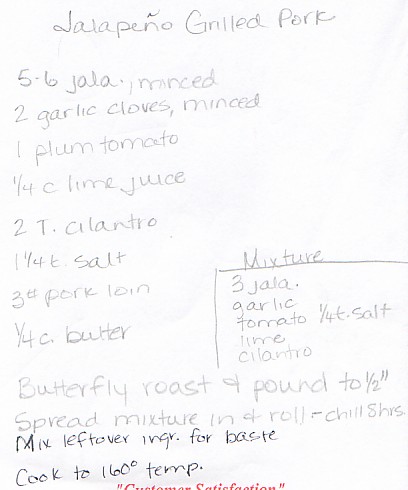 Jalapeño Grilled Pork
5-6 jala., minced
2 garlic cloves, minced
1 plum tomato
1/4 c lime juice
2 T. cilantro
1 1/4 t. salt
3# pork loin
1/4 c. butter
Mixture
3 jala.
garlic
tomato 1/4 t. salt
lime
cilantro
Butterfly roast & pound to 1/2"
Spread mixture in & roll - chill 8hrs.
Mix leftover ingr. for baste
Cook to 160° temp.
"Customer Satisfaction"